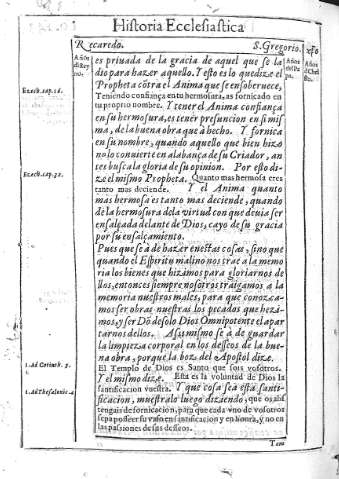 Historia Ecclesiastica
Recaredo.
S. Gregorio.
Año d
Año d
es priuada de la gracia de aquel que se la
dio para hazer aquello. Y esto es lo quedize el
Propheta cõtra el Anima que se ensoberuece,
Ezech. cap. 16.
Teniendo confiança en tu hermosura, as fornicado en
tu proprio nombre. Y tener el Anima confiança
en su hermosura, es tener presuncion en si mis
ma, de la buena obra que à hecho. Y fornica
en su nombre, quando aquello que bien hizo
no lo conuierte en alabança de su Criador, an
tes busca la gloria de su opinion. Por esto di-
Ezech. cap. 32.
ze el mismo Propheta. Quanto mas hermosa eres
tanto mas deciende. Y el Anima quanto
mas hermosa es tanto mas deciende, quando
de la hermosura de la virtud con que deuia ser
ensalçada delante de Dios, cayo de su gracia
por su ensalçamiento.
Pues que se à de hazer en estas cosas, sino que
quando el Espiritu malino nos trae a la memo
ria los bienes que hizimos para gloriarnos de
llos, entonces siempre nosotros traigamos a la
memoria nuestros males, para que conozca-
mos ser obras nuestras los pecados que hezi-
mos, y ser Dõ de solo Dios Omnipotente el apar
tarnos dellos. Assimismo se à de guardar
la limpieza corporal en los desseos de la bue
na obra, porque la boz del Apostol dize.
1. Ad Corinth. 3.
El Templo de Dios es Santo que sois vosotros.
Y el mismo dize. Esta es la voluntad de Dios la
1. Ad Thesalonic. 4
santificacion vuestra. Y que cosa sea esta santi-
ficacion, muestralo luego diziendo, que os abs
tengais de fornicacion, para que cada vno de vosotros
sepa posseer su vaso en santificacion y en honra, y no en
las passiones de sus desseos.